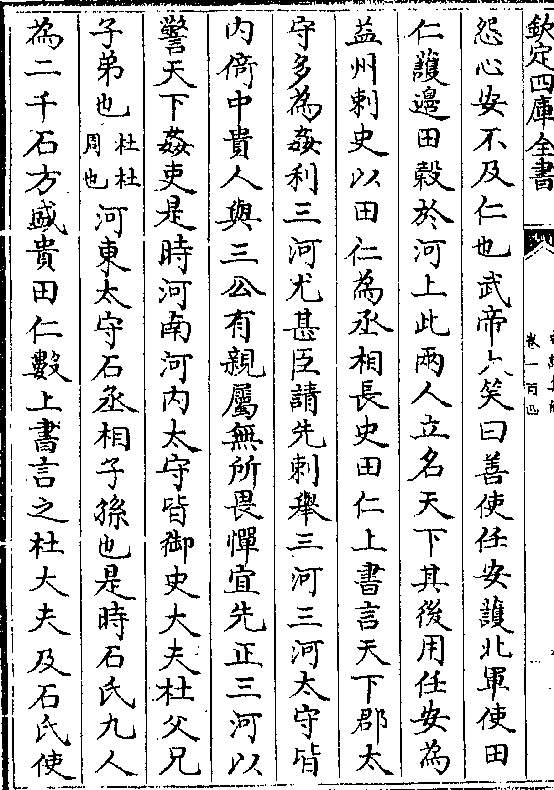 欽定四庫全書
卷一百四
怨心安不及仁也武帝大笑曰善使任安護北軍使田
仁護邊田穀於河上此兩人立名天下其後用任安為
益州刺史以田仁為丞相長史田仁上書言天下郡太
守多為姦利三河尤甚臣請先刺舉三河三河太守皆
內倚中貴人與三公有親屬無所畏憚宜先正三河以
警天下姦吏是時河南河內太守皆御史大夫杜父兄
子弟也杜杜周也河東太守石丞相子孫也是時石氏九人
為二千石方盛貴田仁數上書言之杜大夫及石氏使